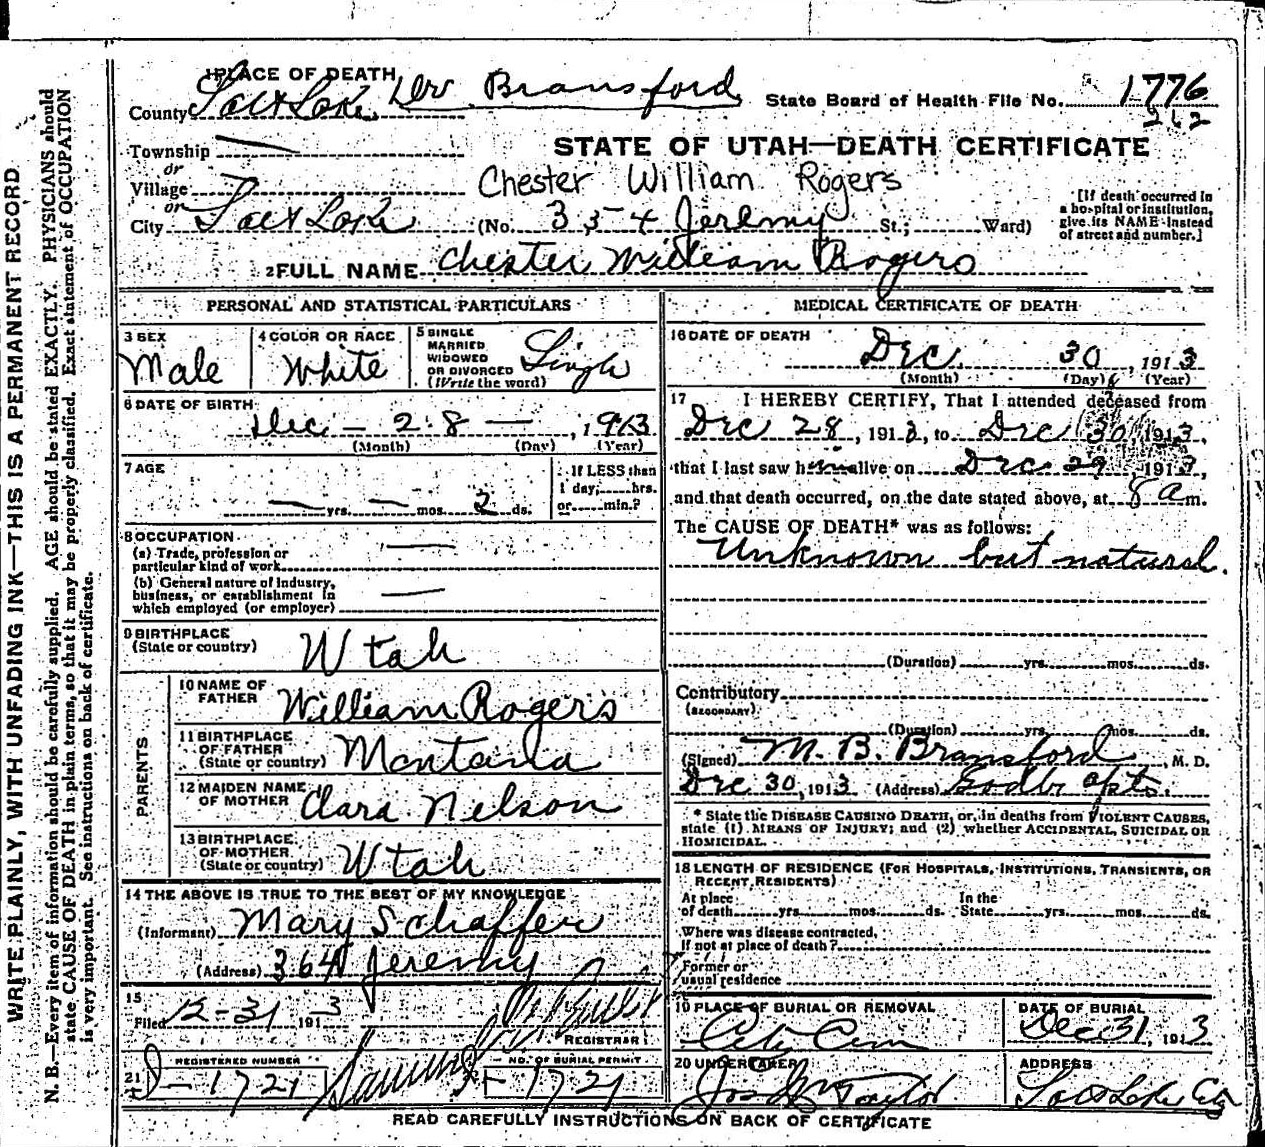 WRITE PLAINLY, WITH UNFADING INK—THIS IS A PERMANENT RECORD
N. B.—Every item of information should be carefully supplied. AGE should be stated EXACTLY. PHYSICIANS should
state CAUSE OF DEATH in plain terms, so that it may be properly classified. Exact statement of OCCUPATION
is very important. See instructions on back of certificate.
1 PLACE OF DEATH Dr. Bransford
County Salt Lake
State Board of Health File No. 1776
262
Township —
STATE OF UTAH—DEATH CERTIFICATE
or
Village
Chester William Rogers
or
City Salt Lake (No. 354 Jeremy St.; Ward)
[If death occurred in
a hospital or institution,
give its NAME instead
of street and number.]
2 FULL NAME Chester William Rogers
PERSONAL AND STATISTICAL PARTICULARS
3 SEX
Male
4 COLOR OR RACE
White
5 SINGLE
MARRIED
WIDOWED
OR DIVORCED
(Write the word)
Single
6 DATE OF BIRTH
Dec — 28 —, 1913
(Month) (Day) (Year)
7 AGE
— yrs. — mos. 2 ds.
If LESS than
1 day, hrs.
or min.?
8 OCCUPATION
(a) Trade, profession or
particular kind of work —
(b) General nature of Industry,
business, or establishment in
which employed (or employer) —
9 BIRTHPLACE
(State or country) Utah
PARENTS
10 NAME OF
FATHER William Rogers
11 BIRTHPLACE
OF FATHER
(State or country) Montana
12 MAIDEN NAME
OF MOTHER Clara Nelson
13 BIRTHPLACE
OF MOTHER
(State or country) Utah
14 THE ABOVE IS TRUE TO THE BEST OF MY KNOWLEDGE
(Informant) Mary Schaffer
(Address) 364 Jeremy
15
Filed 12-31 1913
REGISTRAR
REGISTERED NUMBER
21 D-1721
NO. OF BURIAL PERMIT
1721
MEDICAL CERTIFICATE OF DEATH
16 DATE OF DEATH
Dec. 30, 1913
(Month) (Day) (Year)
17 I HEREBY CERTIFY, That I attended deceased from
Dec 28, 1913, to Dec 30 1913,
that I last saw him alive on Dec 29, 1913,
and that death occurred, on the date stated above, at 8 a m.
The CAUSE OF DEATH* was as follows:
Unknown but natural.
(Duration) yrs. mos. ds.
Contributory
(SECONDARY)
(Duration) yrs. mos. ds.
(Signed) M. B. Bransford, M. D.
Dec 30, 1913 (Address) Godbe Apts.
* State the DISEASE CAUSING DEATH, or, in deaths from VIOLENT CAUSES,
state (1) MEANS OF INJURY; and (2) whether ACCIDENTAL, SUICIDAL OR
HOMICIDAL.
18 LENGTH OF RESIDENCE (FOR HOSPITALS, INSTITUTIONS, TRANSIENTS, OR
RECENT RESIDENTS)
At place In the
of death yrs. mos. ds. State yrs. mos. ds.
Where was disease contracted,
if not at place of death?
Former or
usual residence
19 PLACE OF BURIAL OR REMOVAL
City Cem
DATE OF BURIAL
Dec 31, 1913
20 UNDERTAKER
Jos Wm Taylor
ADDRESS
Salt Lake City
READ CAREFULLY INSTRUCTIONS ON BACK OF CERTIFICATE